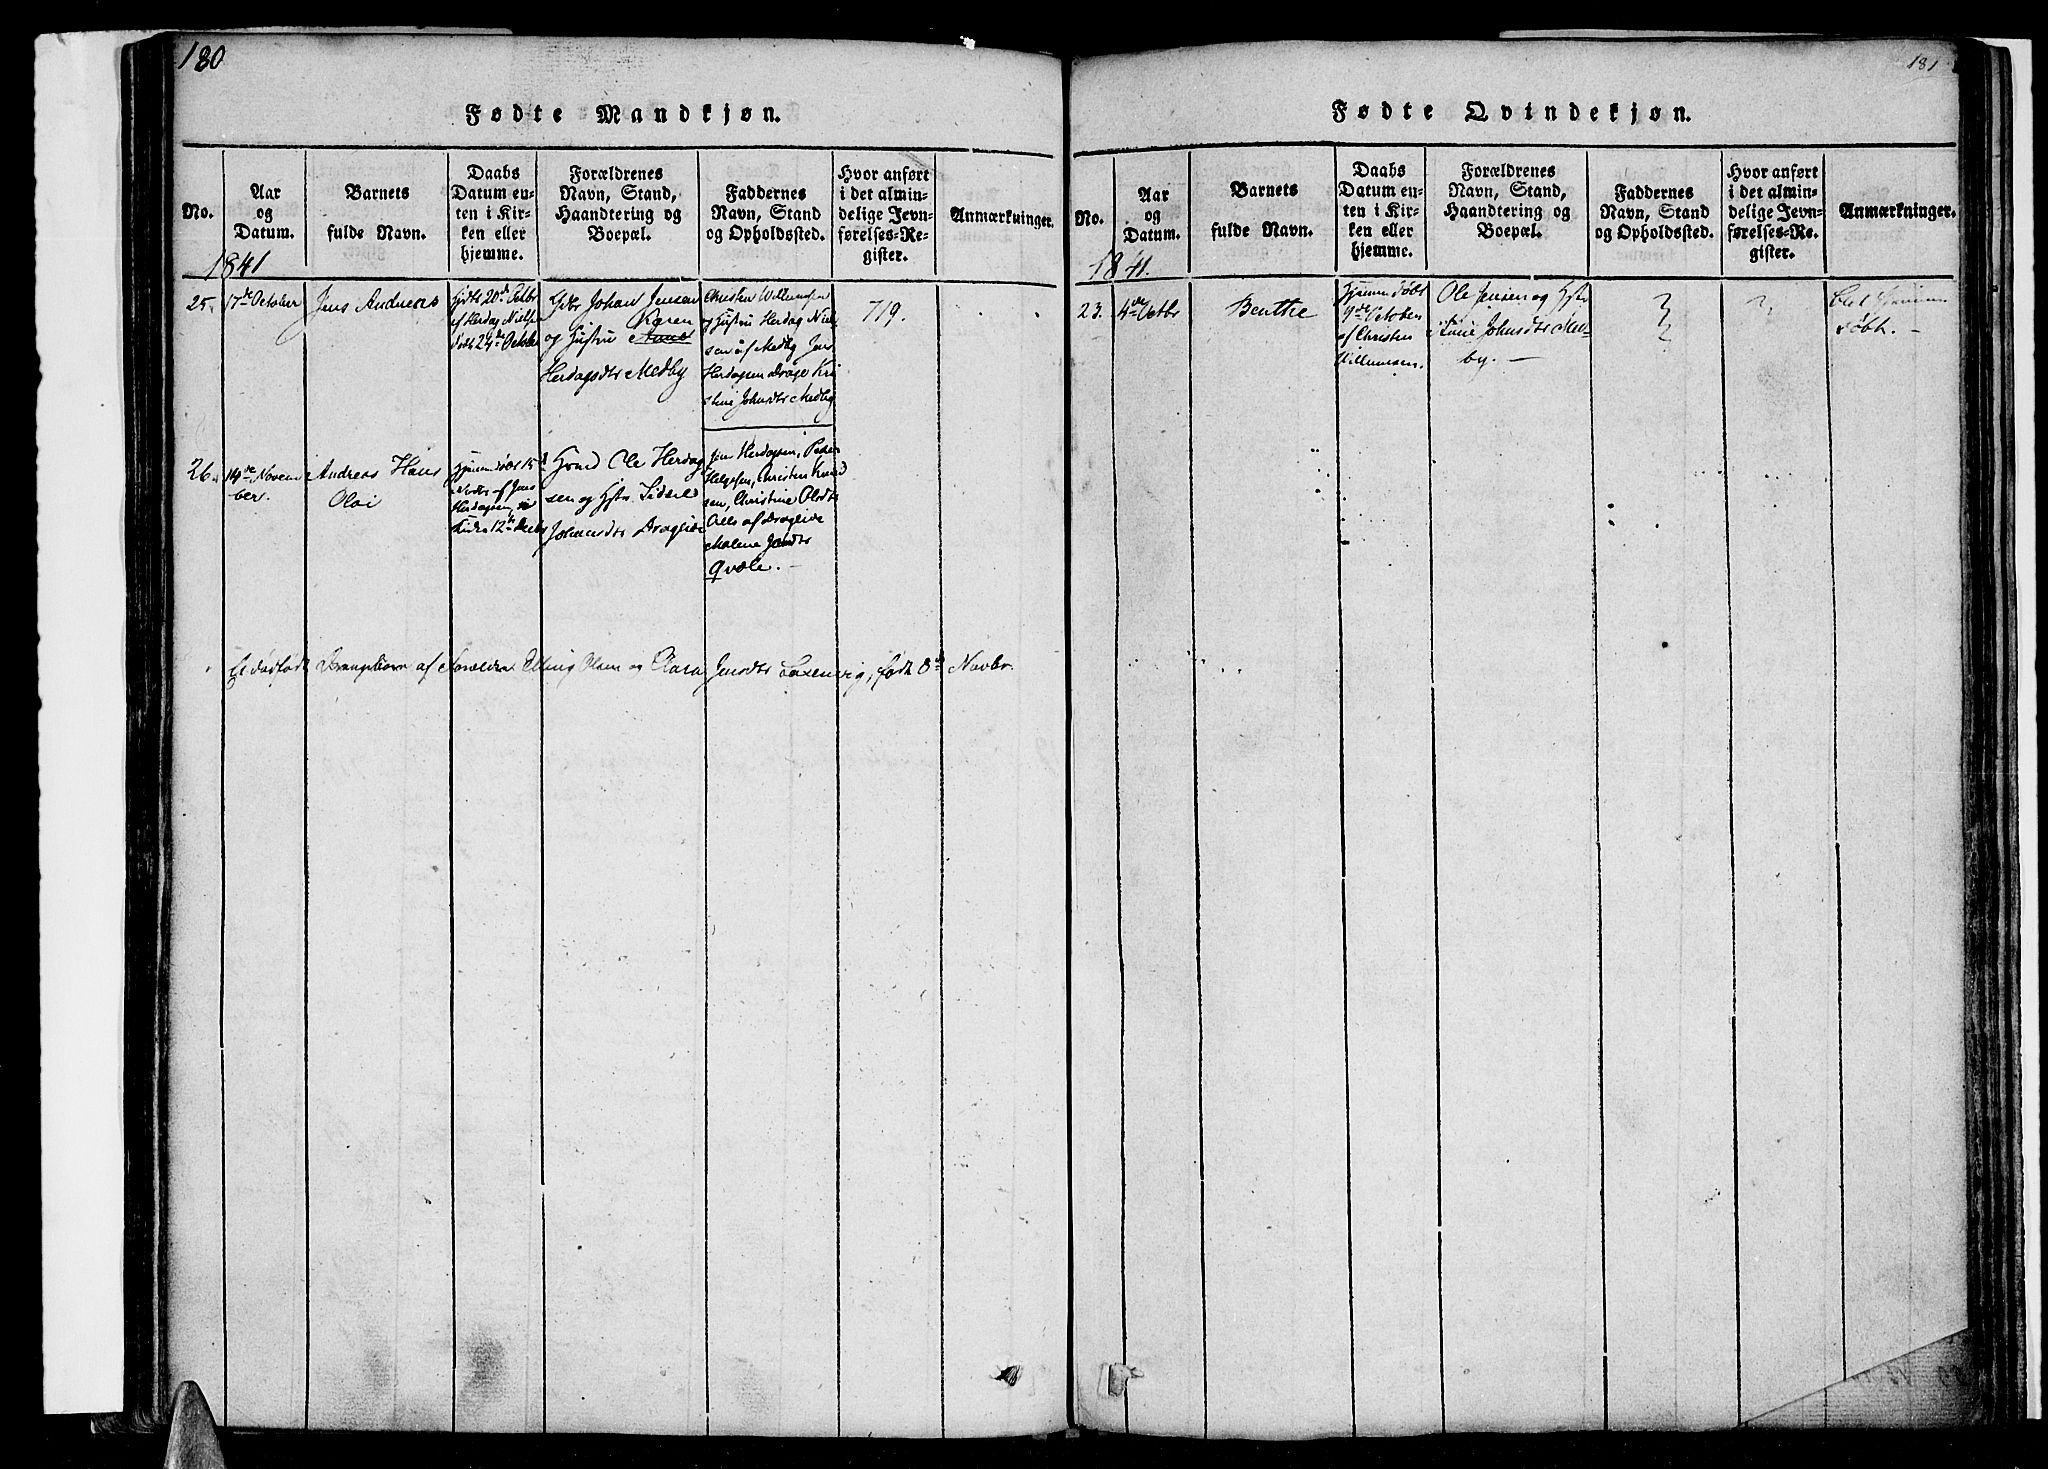 180
Fødte Mandkjøn.
No.
Aar
og
Datum.
Barnets
fulde Navn.
Daabs
Datum en-
ten i Kir-
ken eller
hjemme.
Forældrenes
Navn, Stand,
Haandtering og
Boepæl.
Faddernes
Navn, Stand
og Opholdssted.
Hvor anført
i det almin-
delige Jevn-
førelses-Re-
gister.
Anmærkninger.
1841
25.
17de October
Jens Andreas
20de Octbr
af Herdag Niels
24de October
Johan Jensen
Karen
og Hustru Anne
Herdagsdtr Medby
Christen Willumsen
og Hustru Herdag Niel-
sen af Medby Jens
Herdagsen Drage Kri
stine Johnsdtr Medby
719.
26.
14de Novem
ber.
Andreas Hans
Olai
Hjemmedøbt 15de
af Jens
Herdagsen, i
Kirken 12te Decbr
Ole Herdag
sen og Hstr Sidsel
Johansdtr Draglide
Jens Herdagsen, Peder
Helgesen, Christen Knud
sen, Christine Olsdtr
Alle af Draglide
Malene Jensdtr
Qvæle.
Et dødfødt Drengebarn af Forældre Elling Olsen og Clara Jensdtr Laxenvig, født 8de Novbr.
181
Fødte Qvindekjøn.
No.
Aar
og
Datum.
Barnets
fulde Navn.
Daabs
Datum en-
ten i Kir-
ken eller
hjemme.
Forældrenes
Navn, Stand,
Haandtering og
Boepæl.
Faddernes
Navn, Stand
og Opholdssted.
Hvor anført
i det almin-
delige Jevn-
førelses-Re-
gister.
Anmærkninger.
1841.
23.
4de Octbr
Benthe
Hjemmedøbt
9de October
af Christen
Willumsen.
Ole Jensen og Hstr
Johnsdtr Med-
by. —
?
?
?
døbt. —